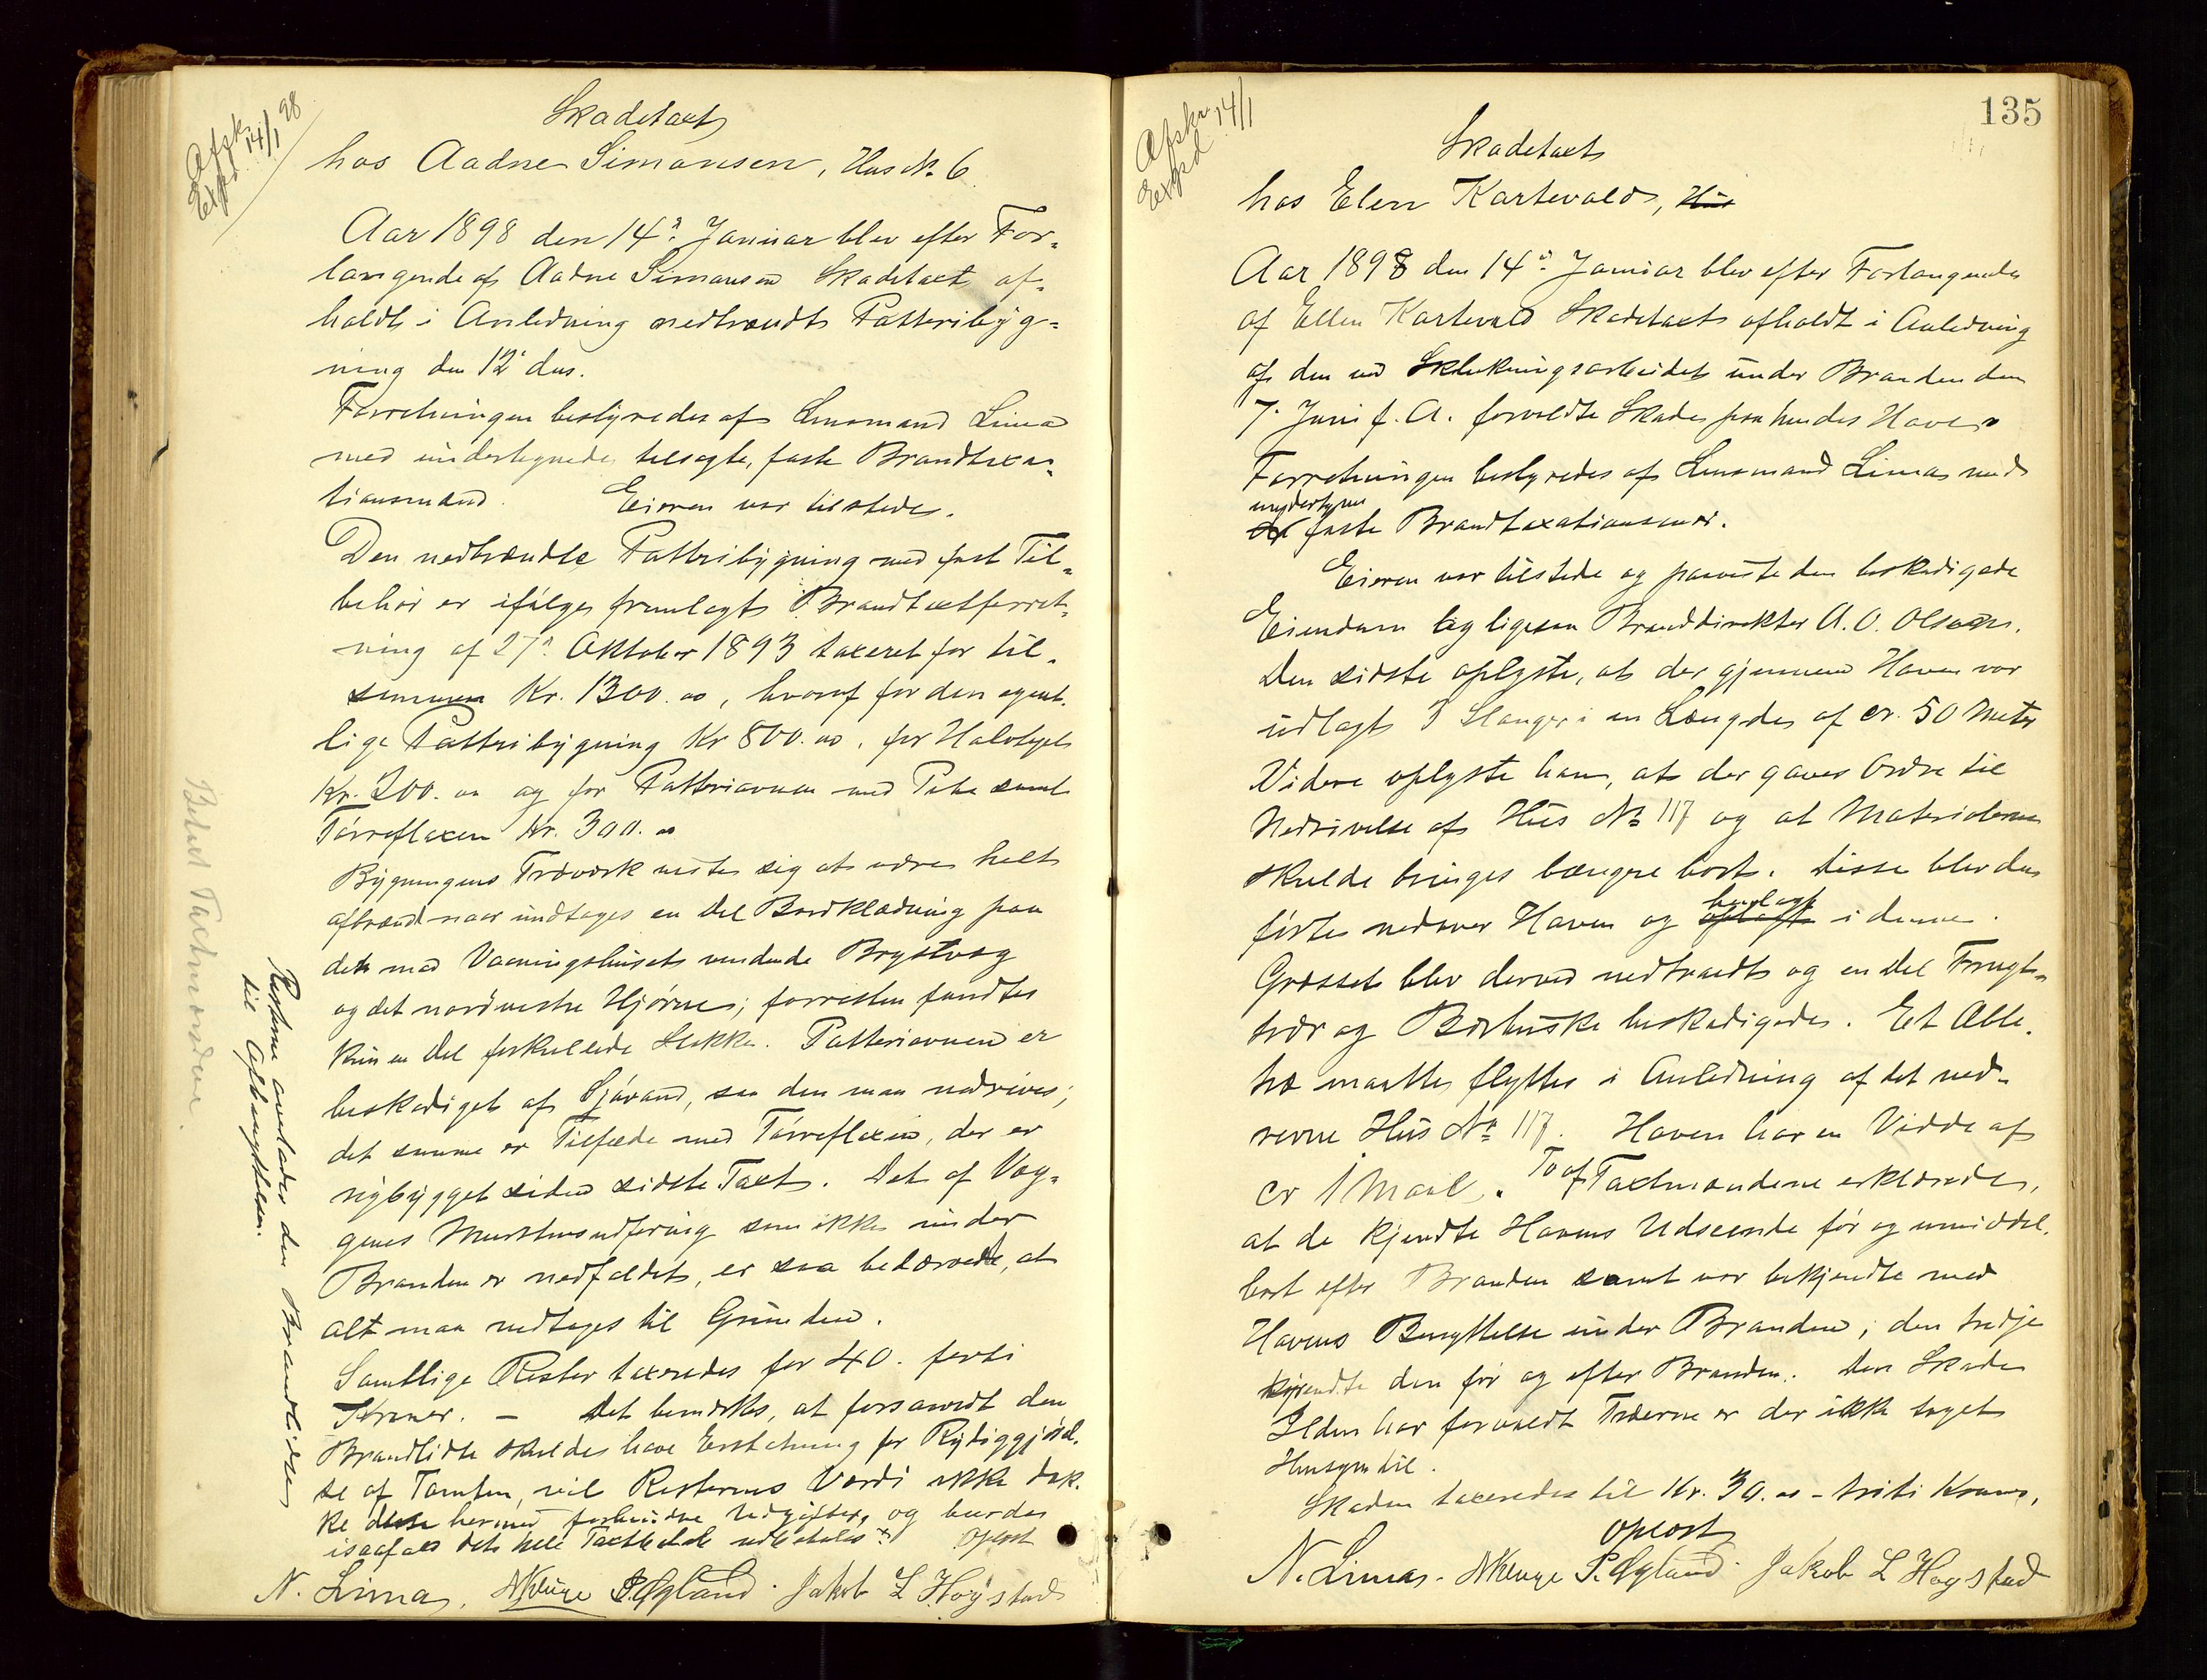 Afsk. 14/1 98
Expd.
Skadetaxt
hos Aadne Simonsen, Hus No. 6
Aar 1898 den 14d. Januar blev efter For-
langende af Aadne Simonsen Skadetaxt af-
holdt i Anledning nedbrændt Potteribyg-
ning den 12' ds.
Forretningen bestyredes af Lensmand Lima
med undertegnede tilsagte, faste Brandtaxa-
tionsmænd. Eieren var tilstede.
Den nedbrændte Potteribygning med fast Til-
behør er ifølge fremlagt Brandtaxtforret-
ning af 27d. Oktober 1893 taxeret for til-
sammen Kr. 1300.00, hvoraf for den egent-
lige Potteribygning Kr 800.00, for Halvtaget
Kr. 200.00 og for Potteriovnen med Pibe samt
Tørreflaxen Kr. 300.00
Bygningens Træværk viste sig at være helt
afbrændt naar undtages en Del Bordklædning paa
det mod Vaaningshuset vendende Brystvæg
og det nordvestre Hjørne; forresten fandtes
kun en Del forkullede Stokke. Potteriovnen er
beskadiget af Sjøvand, saa den maa nedrives;
det samme er Tilfælde med Tørreflaxen, der er
nybygget siden sidste Taxt. Det af Væg-
genes Murstensudforing som ikke under
Branden er nedfaldet, er saa bedærvet, at
alt maa nedtages til Grunden.
Samtlige Rester taxeredes for 40. førti
Kroner. – Det bemærkes, at forsaavidt den
Brandlidte skulde have Erstatning for Rydiggjørel-
se af Tomten, vil Resternes Værdi ikke dæk-
ke hermed forbundne Udgifter, og burde
isaafald det hele Taxtbeløb udbetales x) Oplæst
N. Lima, NKluge P. Egland. Jakob L Høystad
Resterne overlades den Brandlidte
til Afbenyttelse.
Betalt Taxtmændene.
135
Afskr. 14/1
Expd
Skadetaxt
hos Elen Kartevold, Hus
Aar 1898 den 14d. Januar blev efter Forlangende
af Ellen Kartevold Skadetaxt afholdt i Anledning
af den ved Slukningsarbeidet under Branden den
7. Juni f. A. forvoldte Skade paa hendes Have.
Forretningen bestyredes af Lensmand Lima med
undertegn
faste Brandtaxationsmænd.
Eieren var tilstede og paaviste den beskadigede
Eiendom og ligesaa Branddirektør A. O. Olsen.
Den sidste oplyste, at der gjennem Haven var
udlagt 3 Slanger i en Længde af cr. 50 Meter
Videre oplyste han, at der gaves Ordre til
Nedrivelse af Hus No 117 og at Materialerne
skulde bringes længere bort. Disse blev da
førte nedover Haven og oplagt henlagt i denne.
Græsset blev derved nedtraadt og en Del Frugt-
trær og Bærbuske beskadigede. Et Æble-
træ maatte flyttes i Anledning af det ned-
revne Hus No 117. Haven har en Vidde af
cr 1 Maal. To af Taxtmændene erklærede,
at de kjendte Havens Udseende før og umiddel-
bart efter Branden samt var bekjendte med
Havens Benyttelse under Branden; den tredje
kjendte den før og efter Branden. Den Skade
Ilden har forvoldt Træerne er der ikke taget
Hensyn til.
Skaden taxeredes til Kr. 30.00 – triti Kroner.
Oplæst
N. Lima. NKluge P. Egland. Jakob L Høystad